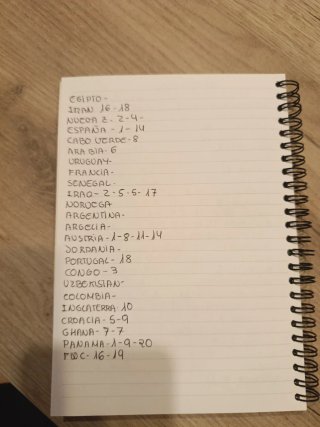 EGIPTO-
IRAN 16-18
NUEVA Z. 2-4-
ESPAÑA-1-14
CABO VERDE-8
ARABIA-6
URUGUAY-
FRANCIA-
SENEGAL-
IRAQ-2-5-6-17
NORUEGA
ARGENTINA-
ARGELIA-
AUSTRIA-1-8-11-14
JORDANIA-
PORTUGAL-18
CONGO-3
UZBEKISIAN-
COLOMBIA-
INGLATERRA 10
CROACIA-5-9
GHANA-7-7
PANAMA-1-9-20
16-19